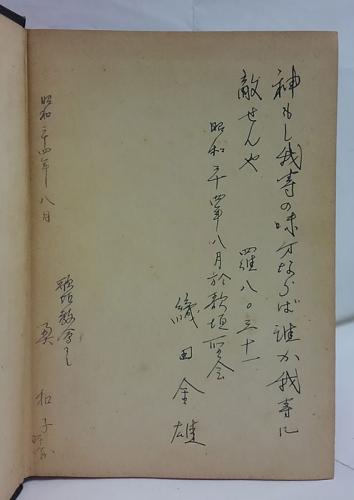 神もし我等の味方ならば誰か我等に
敵せんや 羅八〇三十一
昭和三十四年八月於歌垣聖会
織田金雄
昭和三十四年八月
歌垣教会
和子